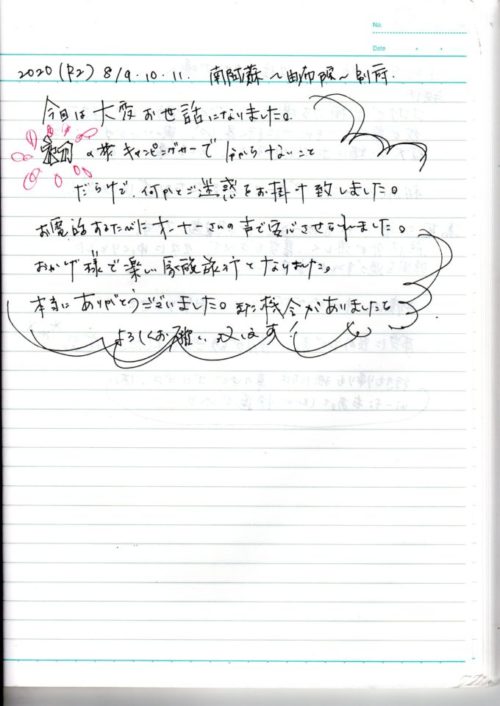 No.
Date
2020 (R2) 8/9.10.11. 南阿蘇～由布院～別府.
今回は大変お世話になりました。
初の旅キャンピングカーで分からないこと
だらけで、何かとご迷惑をお掛け致しました。
お電話するたびにオーナーさんの声で安心させられました。
おかげ様で楽しい家族旅行となりました。
本当にありがとうございました。また機会がありましたら
よろしくお願い致します！